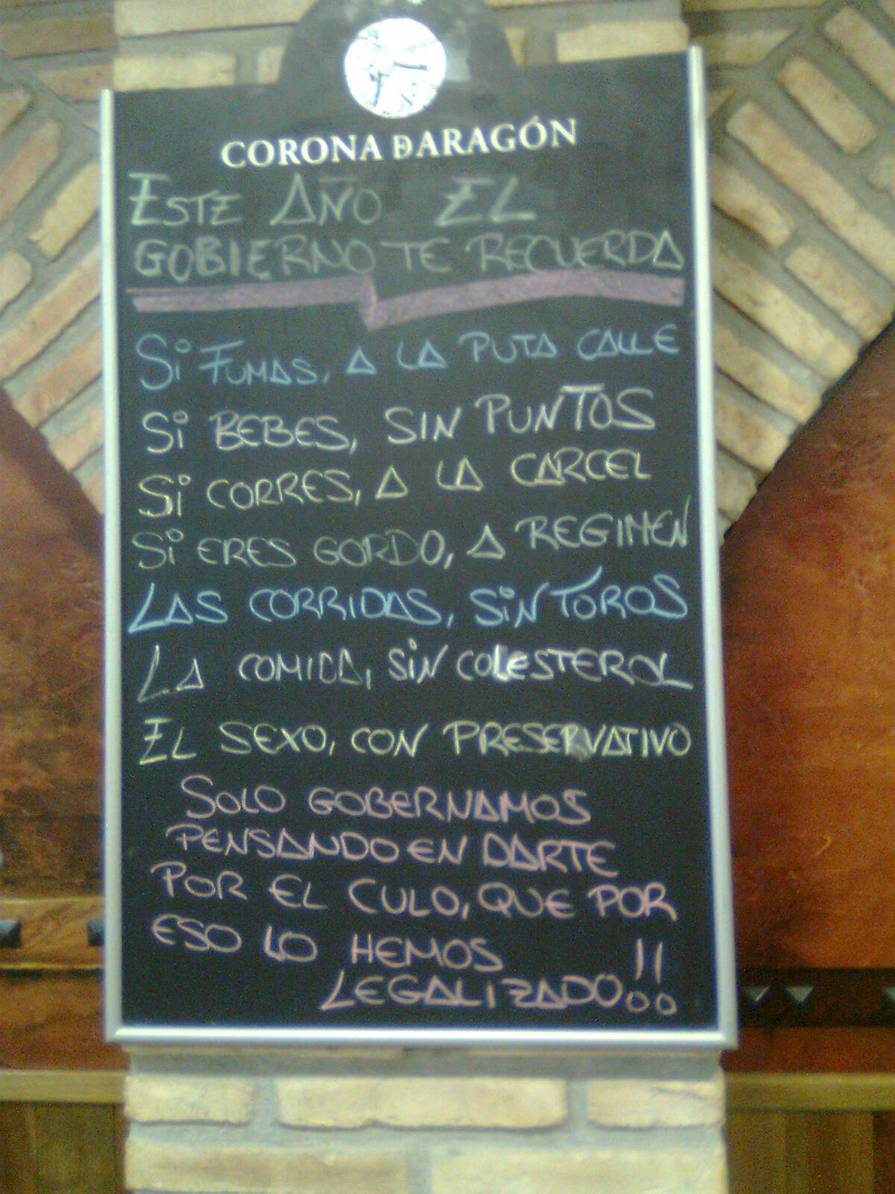 CORONA ÐARAGÓN
ESTE AÑO EL
GOBIERNO TE RECUERDA
Si FUMAS, A LA PUTA CALLE
Si BEBES, SIN PUNTOS
Si CORRES, A LA CARCEL
Si ERES GORDO, A REGIMEN
LAS CORRIDAS, SiN TOROS
LA COMIDA, SiN COLESTEROL
EL SEXO, CON PRESERVATIVO
SOLO GOBERNAMOS
PENSANDO EN DARTE
POR EL CULO, QUE POR
ESO LO HEMOS
LEGALIZADO!!